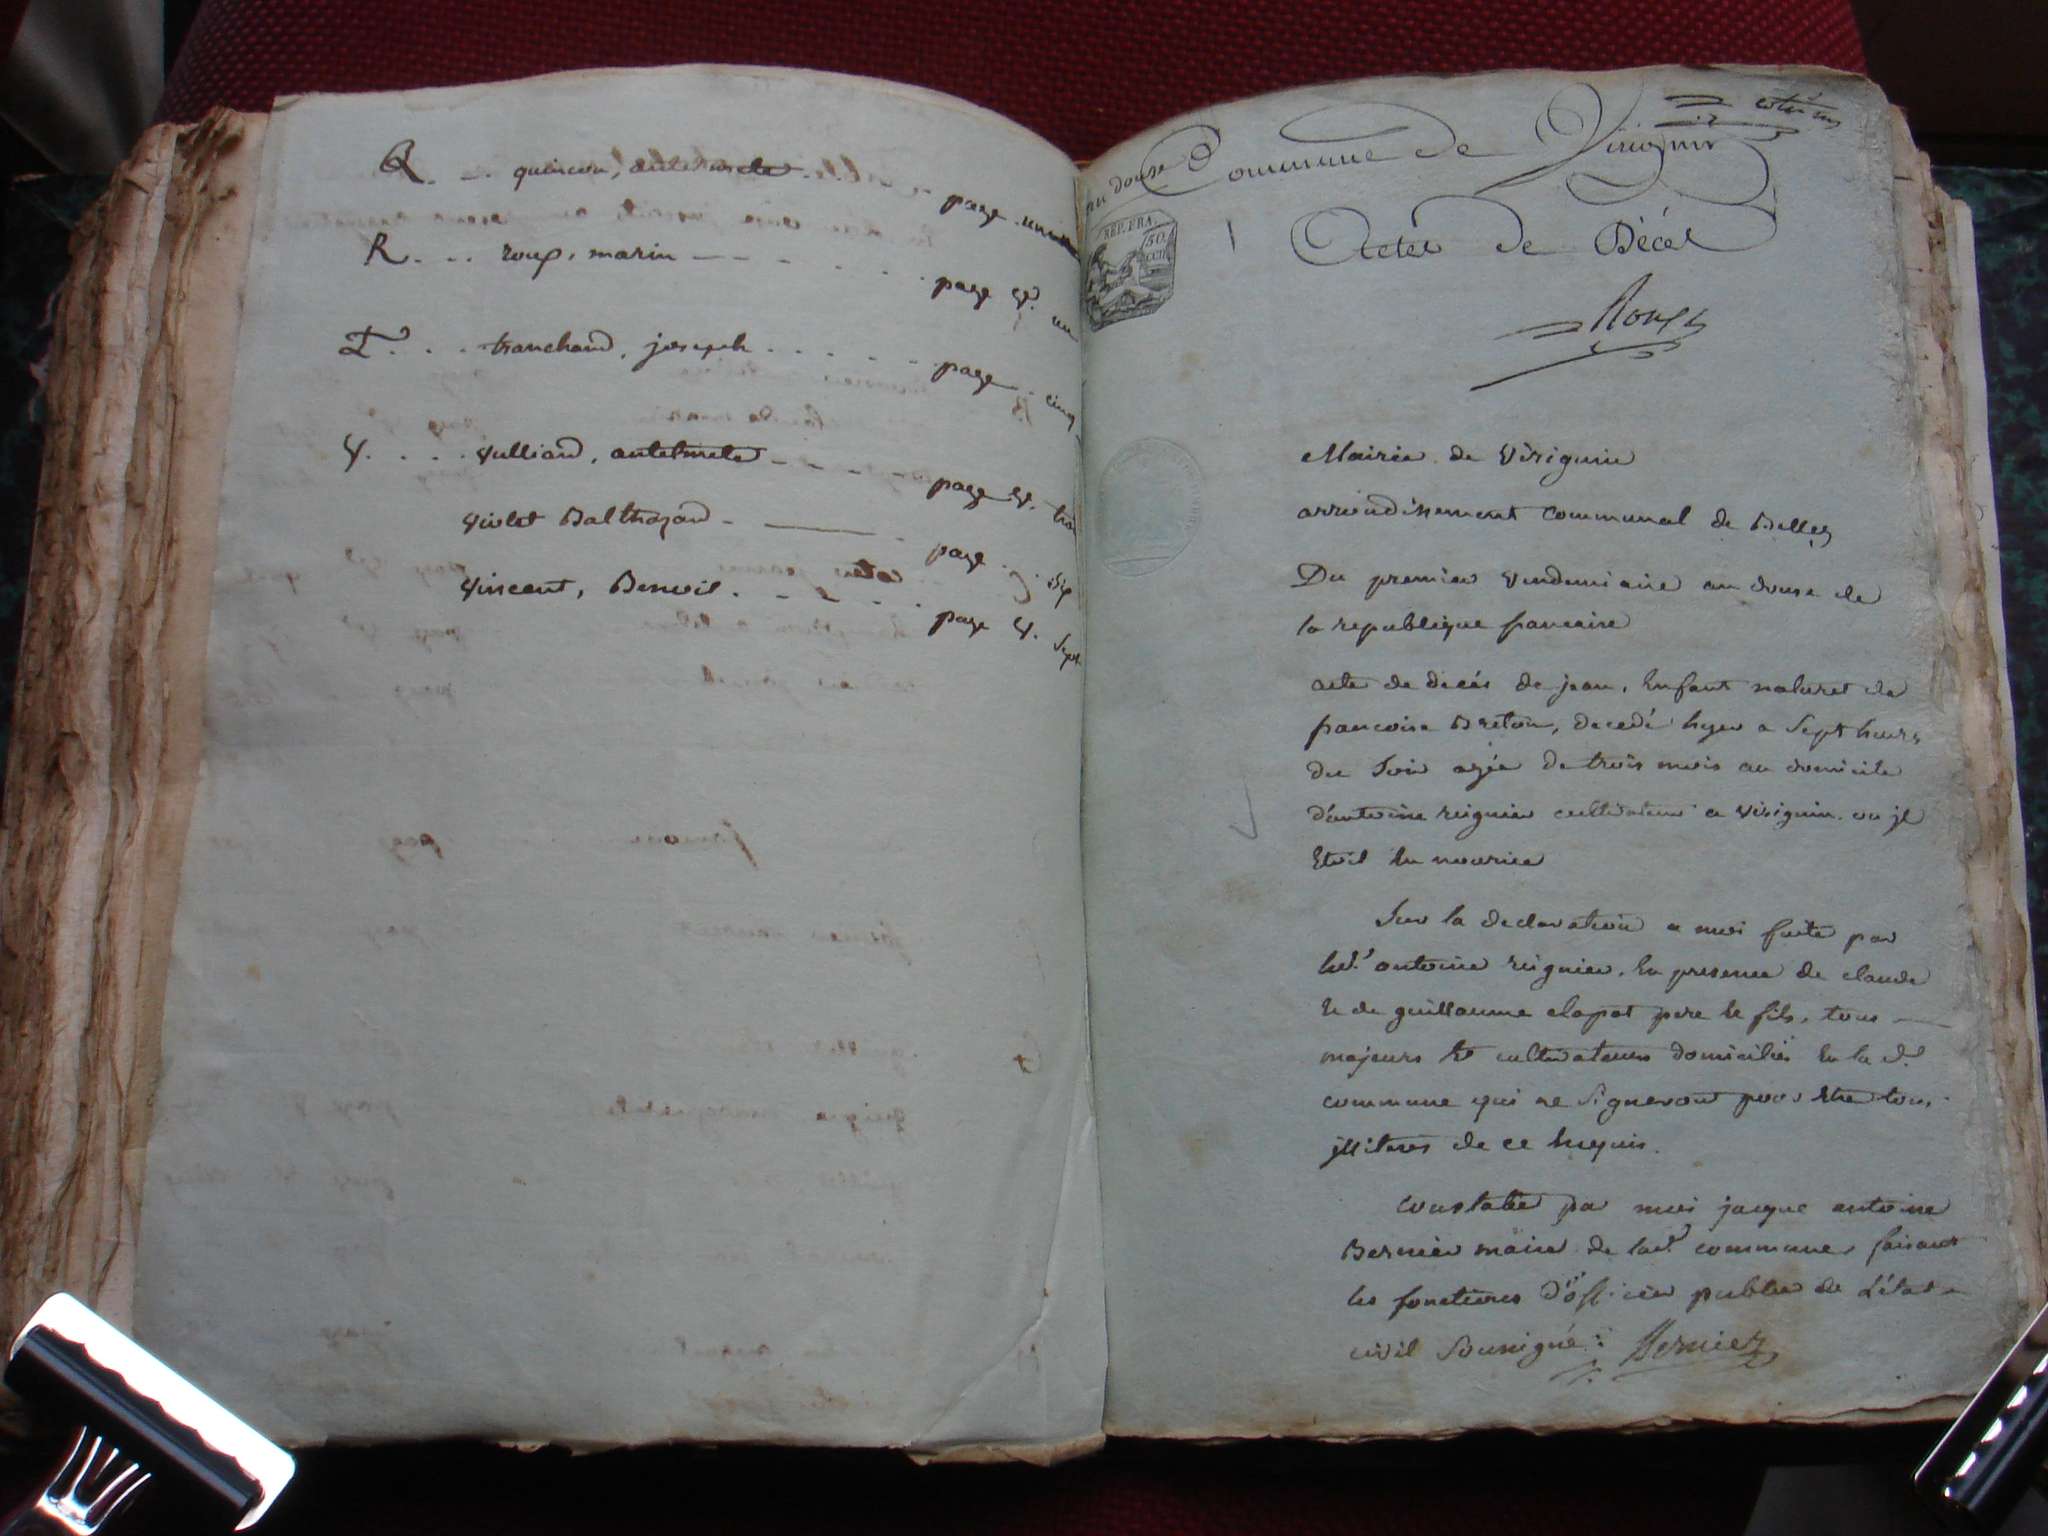 Q. quincon, antelmete page
R. roux, marin page v.º un
T. tranchand, joseph page cinq
V. vulliand, antelmete page v. troi
violet Balthazard page six
vincent, Benoit page v. sept
an douse Commune de Virignin
cotté un
REP. FRA.
50
CEN
1
Actes de Décès
Mairie de Virignin
arrondissement communal de Belley
Du premier vendemiaire an douse de
la republique francaise
acte de décés de jean, Enfant naturel de
francoise Breton, decedé hyer a Sept heures
du Soir agée de trois mois au domicile
d'antoine reignier cultivateur a Virignin. ou jl
Etoit En nourice
Sur la declaration a moi faite par
led.t antoine reignier, En presence de claude
Et de guillaume clapot pere Et fils, tous
majeurs Et cultivateurs domiciliés En la d.e
commune qui ne Signeront pour Etre tous
jlliteres de ce Enquis.
Constaté par moi jacque antoine
Bernier maire de lad.e commune, faisant
les fonctions d'officier public de L'état
civil Soussigné: Bernier